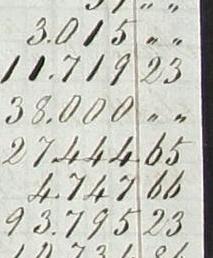 3.015 „ „
11.719 23
38.000 „ „
27444 65
4.747 66
93.795 23